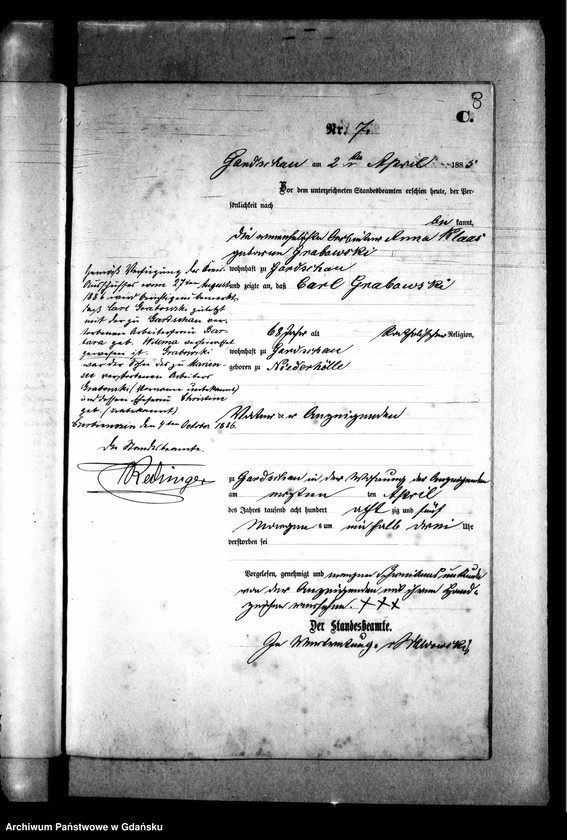 8
C.
Nr. 7.
Gardschau am 2ten April 1885
Vor dem unterzeichneten Standesbeamten erschien heute, der Per-
sönlichkeit nach
be kannt,
die Anna Klaas
geborene Grabowski
wohnhaft zu Gardschau
und zeigte an, daß Carl Grabowski
68 Jahr alt Katholischer Religion,
wohnhaft zu Gardschau
geboren zu Niederhölle
Vater der Anzeigenden
zu Gardschau in der Wohnung der Anzeigenden
am ersten ten April
des Jahres tausend acht hundert acht zig und fünf
Morgens um ein halb drei Uhr
verstorben sei
Vorgelesen, genehmigt und wegen Schreibensunkunde
von der Anzeigenden mit ihrem Hand-
zeichen versehen. +++
Der Standesbeamte.
In Vertretung.
Gemäß Verfügung des Kreis-
Ausschusses vom 27ten August
1886 wird berichtigend bemerkt,
daß Carl Grabowski zuletzt
mit der zu Gardschau ver-
storbenen Arbeiterfrau Bar-
bara geb. verheirathet
gewesen ist. Grabowski
war der Sohn des zu Marien-
see verstorbenen Arbeiters
Grabowski (Vorname unbekannt)
und dessen Ehefrau Christine
geb. (unbekannt)
den 4ten October 1886.
Der Standesbeamte.
Archiwum Państwowe w Gdańsku